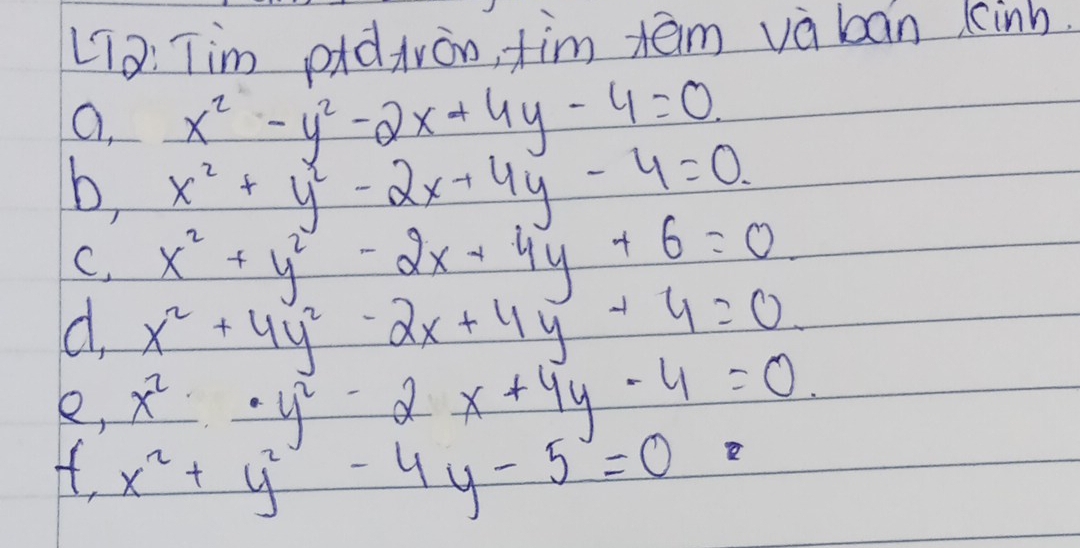 LT2: Tìm ptđ tròn, tìm tâm và bán kính.
a, x² - y² - 2x + 4y - 4 = 0.
b, x² + y² - 2x + 4y - 4 = 0.
c, x² + y² - 2x + 4y + 6 = 0.
d, x² + 4y² - 2x + 4y + 4 = 0.
e, x² · y² - 2x + 4y - 4 = 0.
f, x² + y² - 4y - 5 = 0